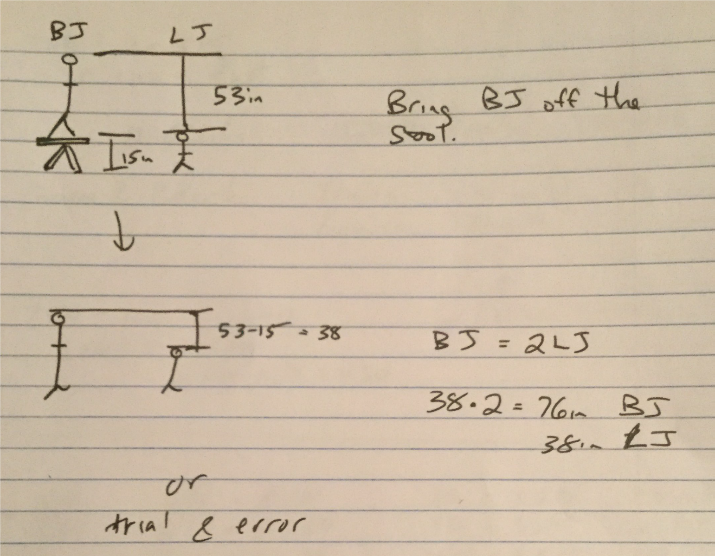 BJ LJ
53in
15in
Bring BJ off the
stool.
53-15 = 38
BJ = 2LJ
38·2 = 76in BJ
38in LJ
or
trial & error